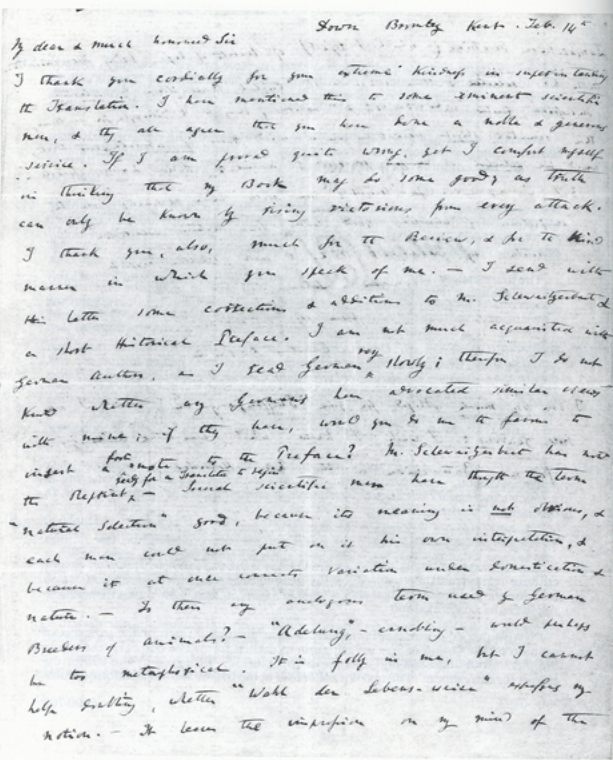 Down Bromley Kent. Feb. 14th
My dear & much honoured Sir
I thank you cordially for your extreme kindness in superintending
the Translation. I have mentioned this to some eminent scientific
men, & they all agree that you have done a noble & generous
service. If I am proved quite wrong, yet I comfort myself
in thinking that my Book may do some good, as truth
can only be known by rising victorious from every attack.
I thank you, also, much for the Review, & for the kind
manner in which you speak of me. — I send with
this letter some corrections & additions to M. Schweitzerbart &
a short Historical Preface. I am not much acquainted with
German authors, as I read German very slowly; therefore I do not
know whether any Germans have advocated similar views
with mine; if they have, would you do me the favour to
insert a foot note to the Preface? M. Schweitzerbart has now
the Reprint ready for a Translator to begin. — Several scientific men have thought the term
"natural Selection" good, because its meaning is not obvious, &
each man could not put on it his own interpretation, &
because it at once connects variation under domestication &
nature. — Is there any analogous term used by German
Breeders of animals? — "Adelung", — ennobling — would perhaps
be too metaphorical. It is folly in me, but I cannot
help doubting, whether "Wahl der Lebens-weise" expresses my
notion. — It leaves the impression on my mind of the